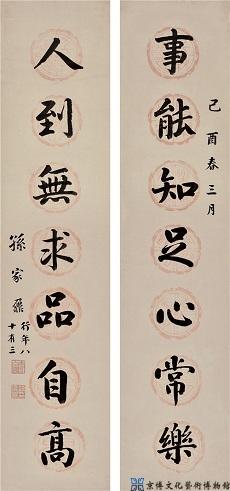 事能知足心常樂
己酉春三月
人到無求品自高
孫家鼐
行年八
十有三
京博文化藝術博物館